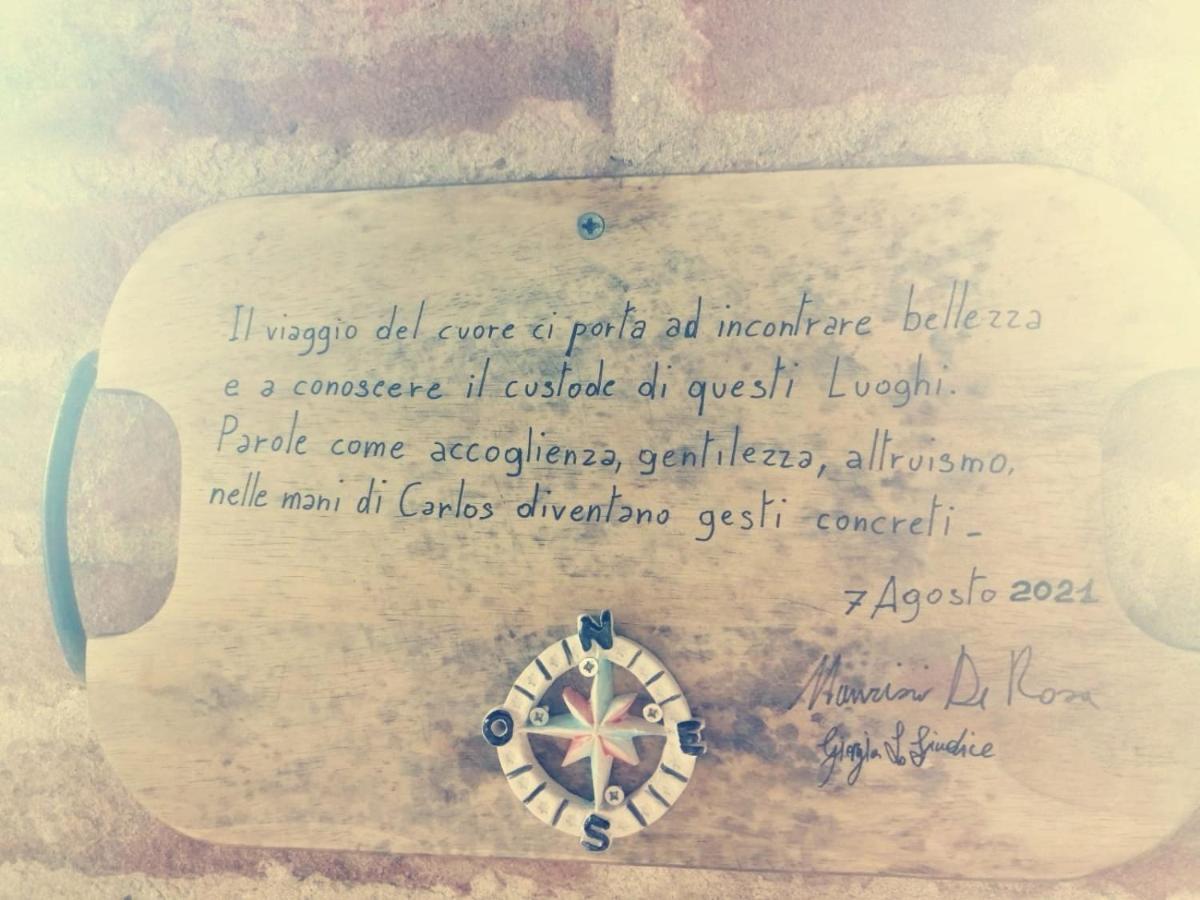 Il viaggio del cuore ci porta ad incontrare bellezza
e a conoscere il custode di questi Luoghi.
Parole come accoglienza, gentilezza, altruismo,
nelle mani di Carlos diventano gesti concreti -
7 Agosto 2021
Maurizio De Rosa
Giorgia Lo Giudice
N
O E
S